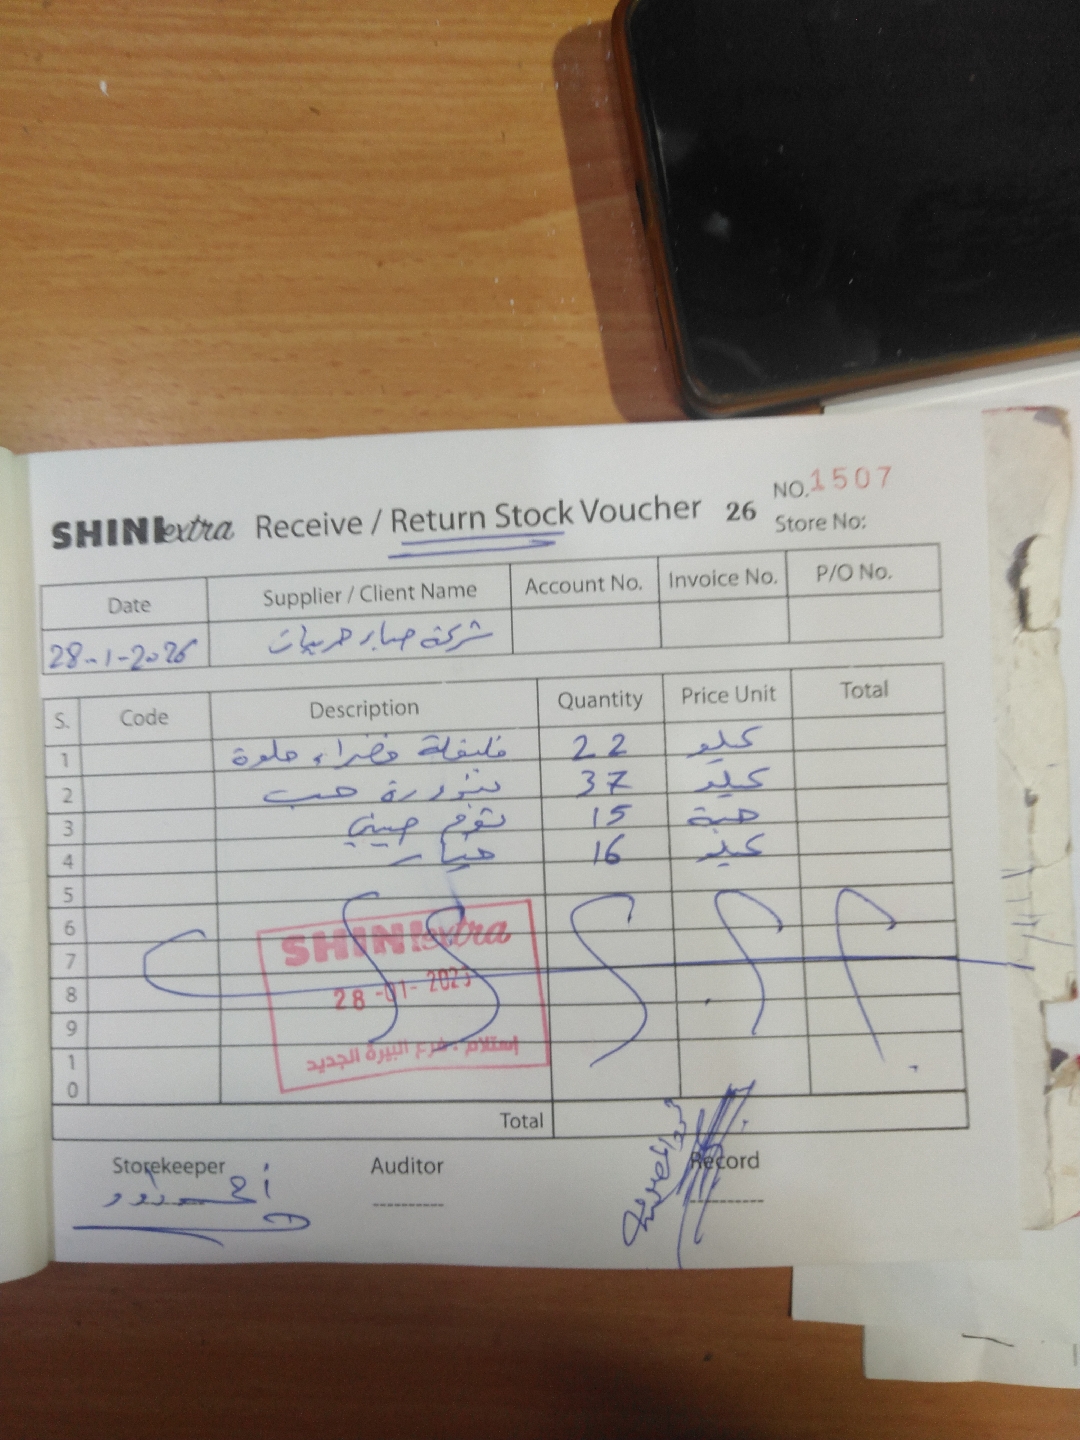 SHINI extra Receive / Return Stock Voucher 26 NO. 1507
Store No:
Date Supplier / Client Name Account No. Invoice No. P/O No.
28-1-2026 شركة صابر مرتجعات
S. Code Description Quantity Price Unit Total
1 فليفلة خضراء حلوة 22 كيلو
2 بندورة حب 37 كيلو
3 ثوم صيني 15 حبة
4 خيار 16 كيلو
5
6
7
8
9
10
SHINI extra
28-01-2025
إستلام - فرع البيرة الجديد
Total
Storekeeper Auditor Record